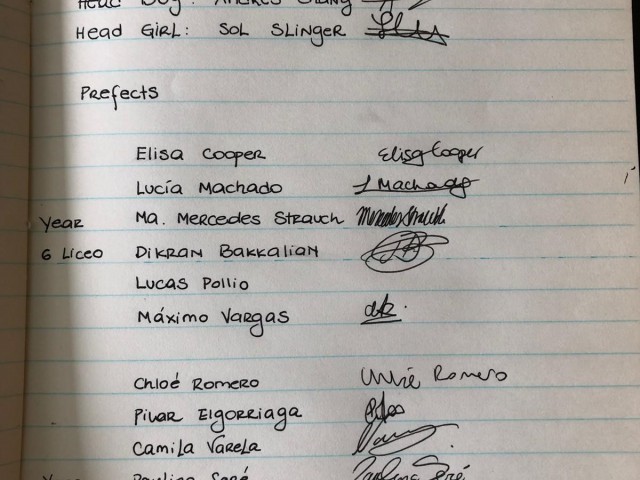 Head Boy:
Head Girl: Sol Slinger
Prefects
Elisa Cooper Elisa Cooper
Lucía Machado L Machado
Year Ma. Mercedes Strauch Mercedes Strauch
6 Liceo Dikran Bakkalian
Lucas Pollio
Máximo Vargas
Chloé Romero Chloé Romero
Pilar Elgorriaga
Camila Varela
Paulina Seré Paulina Seré